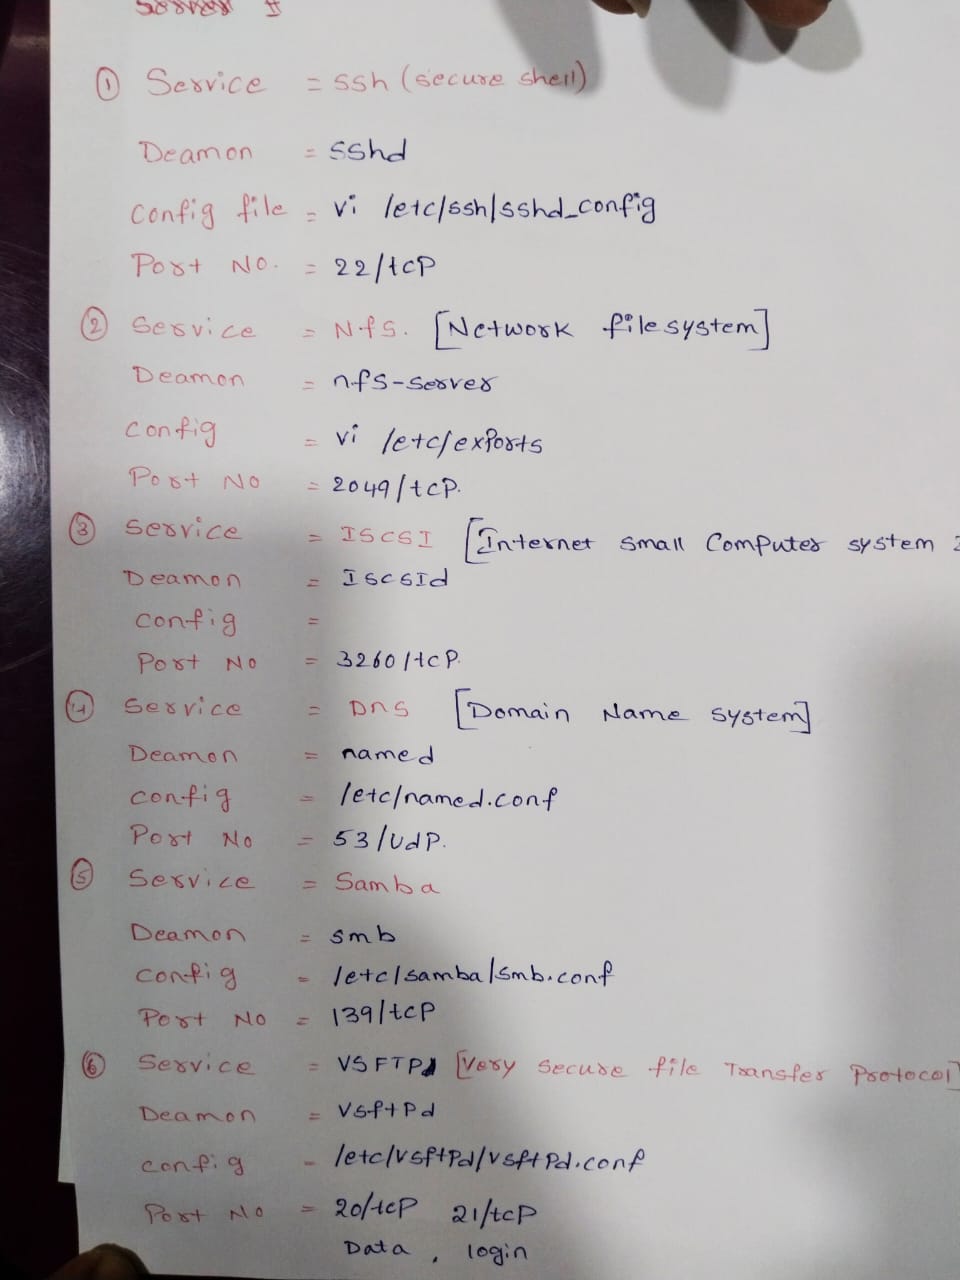 ① Service = ssh (secure shell)
Deamon = sshd
config file = vi /etc/ssh/sshd_config
Port No. = 22/tcp
② Service = Nfs. [Network filesystem]
Deamon = nfs-server
config = vi /etc/exports
Port No = 2049/tcp.
③ Service = ISCSI [Internet small Computer system
Deamon = ISCSId
config =
Port No = 3260/tcp.
④ Service = DNS [Domain Name system]
Deamon = named
config = /etc/named.conf
Port No = 53/udp.
⑤ Service = Samba
Deamon = smb
config = /etc/samba/smb.conf
Port No = 139/tcp
⑥ Service = VSFTPd [Very secure file Transfer Protocol]
Deamon = vsftpd
config = /etc/vsftpd/vsftpd.conf
Port No = 20/tcp 21/tcp
Data , login